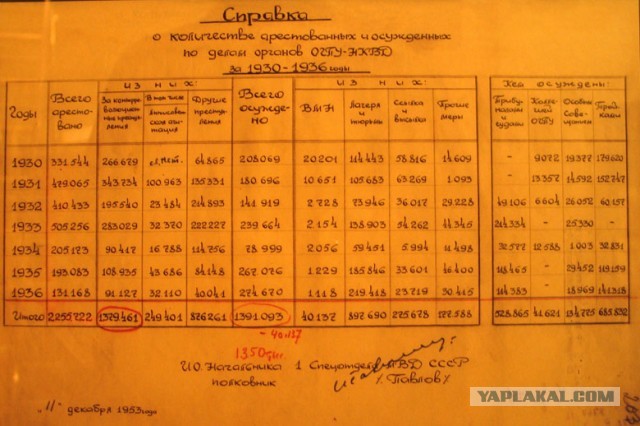 Справка
о количестве арестованных и осужденных
по делам органов ОГПУ-НКВД
за 1930-1936 годы
Годы Всего арестовано из них: Всего осуждено из них: Кем осуждены:
За контрреволюционные преступления В том числе антисоветская агитация Другие преступления ВМН Лагеря и тюрьмы Ссылка и высылка Прочие меры Трибуналами и судами Коллегией ОГПУ Особым Совещанием Тройками
1930 331544 266679 с.Нет. 64865 208069 20201 114443 58816 14609 - 9072 19377 179620
1931 479065 343734 100963 135331 180696 10651 105683 63269 1.093 - 13357 14592 152747
1932 410433 195540 23484 214893 141919 2728 73946 36017 29.228 49106 6604 26052 60.157
1933 505256 283029 32370 222227 239664 2154 138903 54262 44345 214334 - 25330 -
1934 205173 90417 16788 114756 78999 2056 59451 5994 11498 32577 12588 1003 32831
1935 193083 108935 43686 84148 267076 1229 185846 33601 46400 118465 - 29452 119159
1936 131168 91127 32110 40041 274670 1118 219418 23719 30415 114383 - 18969 141318
Итого 2255722 1379461 249401 876261 1391093 40137 897690 275678 177588 528865 41621 134775 685832
- 40137
1350
И.О. Начальника 1 Спецотдела МВД СССР
полковник /Павлов/
"11" декабря 1953 года
YAPLAKAL.COM